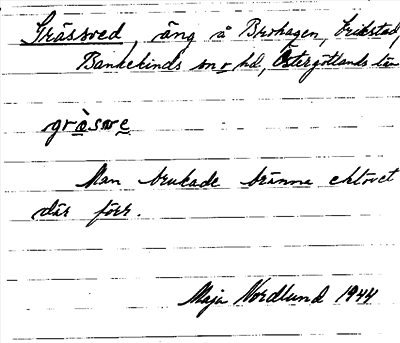 Grässved, äng å Brohagen, Erikstad,
Bankekinds sn o hd, Östergötlands län
gràsve
Man brukade bränna ektovet
där förr.
Maja Nordlund 1944